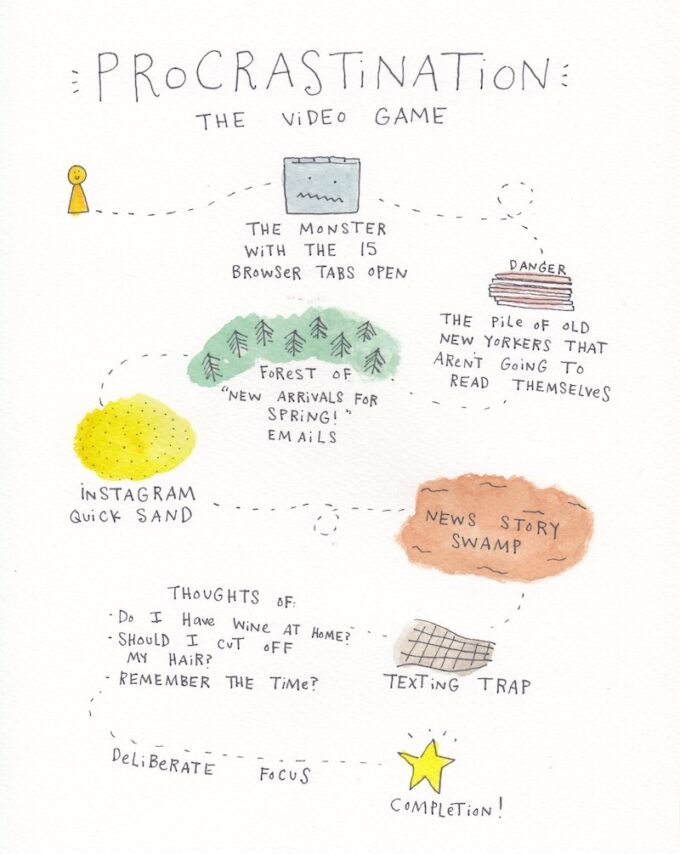 PROCRASTINATION
THE VIDEO GAME
THE MONSTER
WITH THE 15
BROWSER TABS OPEN
DANGER
THE PILE OF OLD
NEW YORKERS THAT
AREN'T GOING TO
READ THEMSELVES
FOREST OF
"NEW ARRIVALS FOR
SPRING!"
EMAILS
INSTAGRAM
QUICK SAND
NEWS STORY
SWAMP
TEXTING TRAP
THOUGHTS OF:
- DO I HAVE WINE AT HOME?
- SHOULD I CUT OFF
MY HAIR?
- REMEMBER THE TIME?
DELIBERATE FOCUS
COMPLETION!